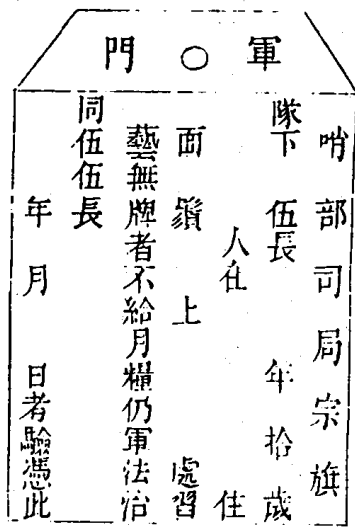 軍○門
哨部司局宗旗
隊下 伍長 年拾歲
人在 住
面鬚上 處習
藝無牌者不給月糧仍軍法治
同伍伍長
年月 日者驗憑此